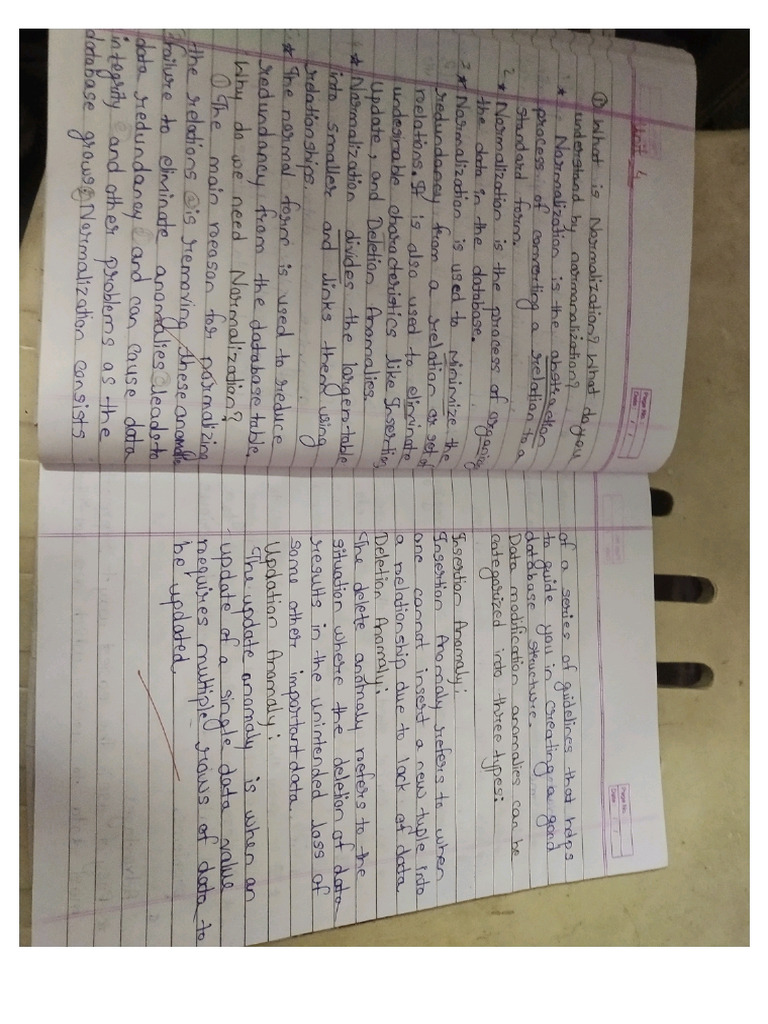 Unit 4
Page No.
Date / /
① What is Normalization? What do you
understand by normanalization?
1 * Normalization is the abstraction
process of converting a relation to a
standard form.
2 * Normalization is the process of organing
the data in the database.
3 * Normalization is used to minimize the
redundancy from a relation or set of
relations. It is also used to eliminate
undesirable characteristics like Insertion,
Update, and Deletion Anomalies.
4 * Normalization divides the larger table
into smaller and links them using
relationships.
* The normal form is used to reduce
redundancy from the database table.
Why do we need Normalization?
① The main reason for normalizing
the relations is removing these anomalie
failure to eliminate anomalies leads to
data redundancy and can cause data
integrity and other problems as the
database grows. Normalization consists
Page No.
Date / /
of a series of guidelines that helps
to guide you in creating a good
database structure.
Data modification anomalies can be
categorized into three types:
Insertion Anomaly:
Insertion Anomaly refers to when
one cannot insert a new tuple into
a relationship due to lack of data
Deletion Anomaly:
The delete anomaly refers to the
situation where the deletion of data
results in the unintended loss of
some other important data
Updation Anomaly:
The update anomaly is when an
update of a single data value
requires multiple rows of data to
be updated